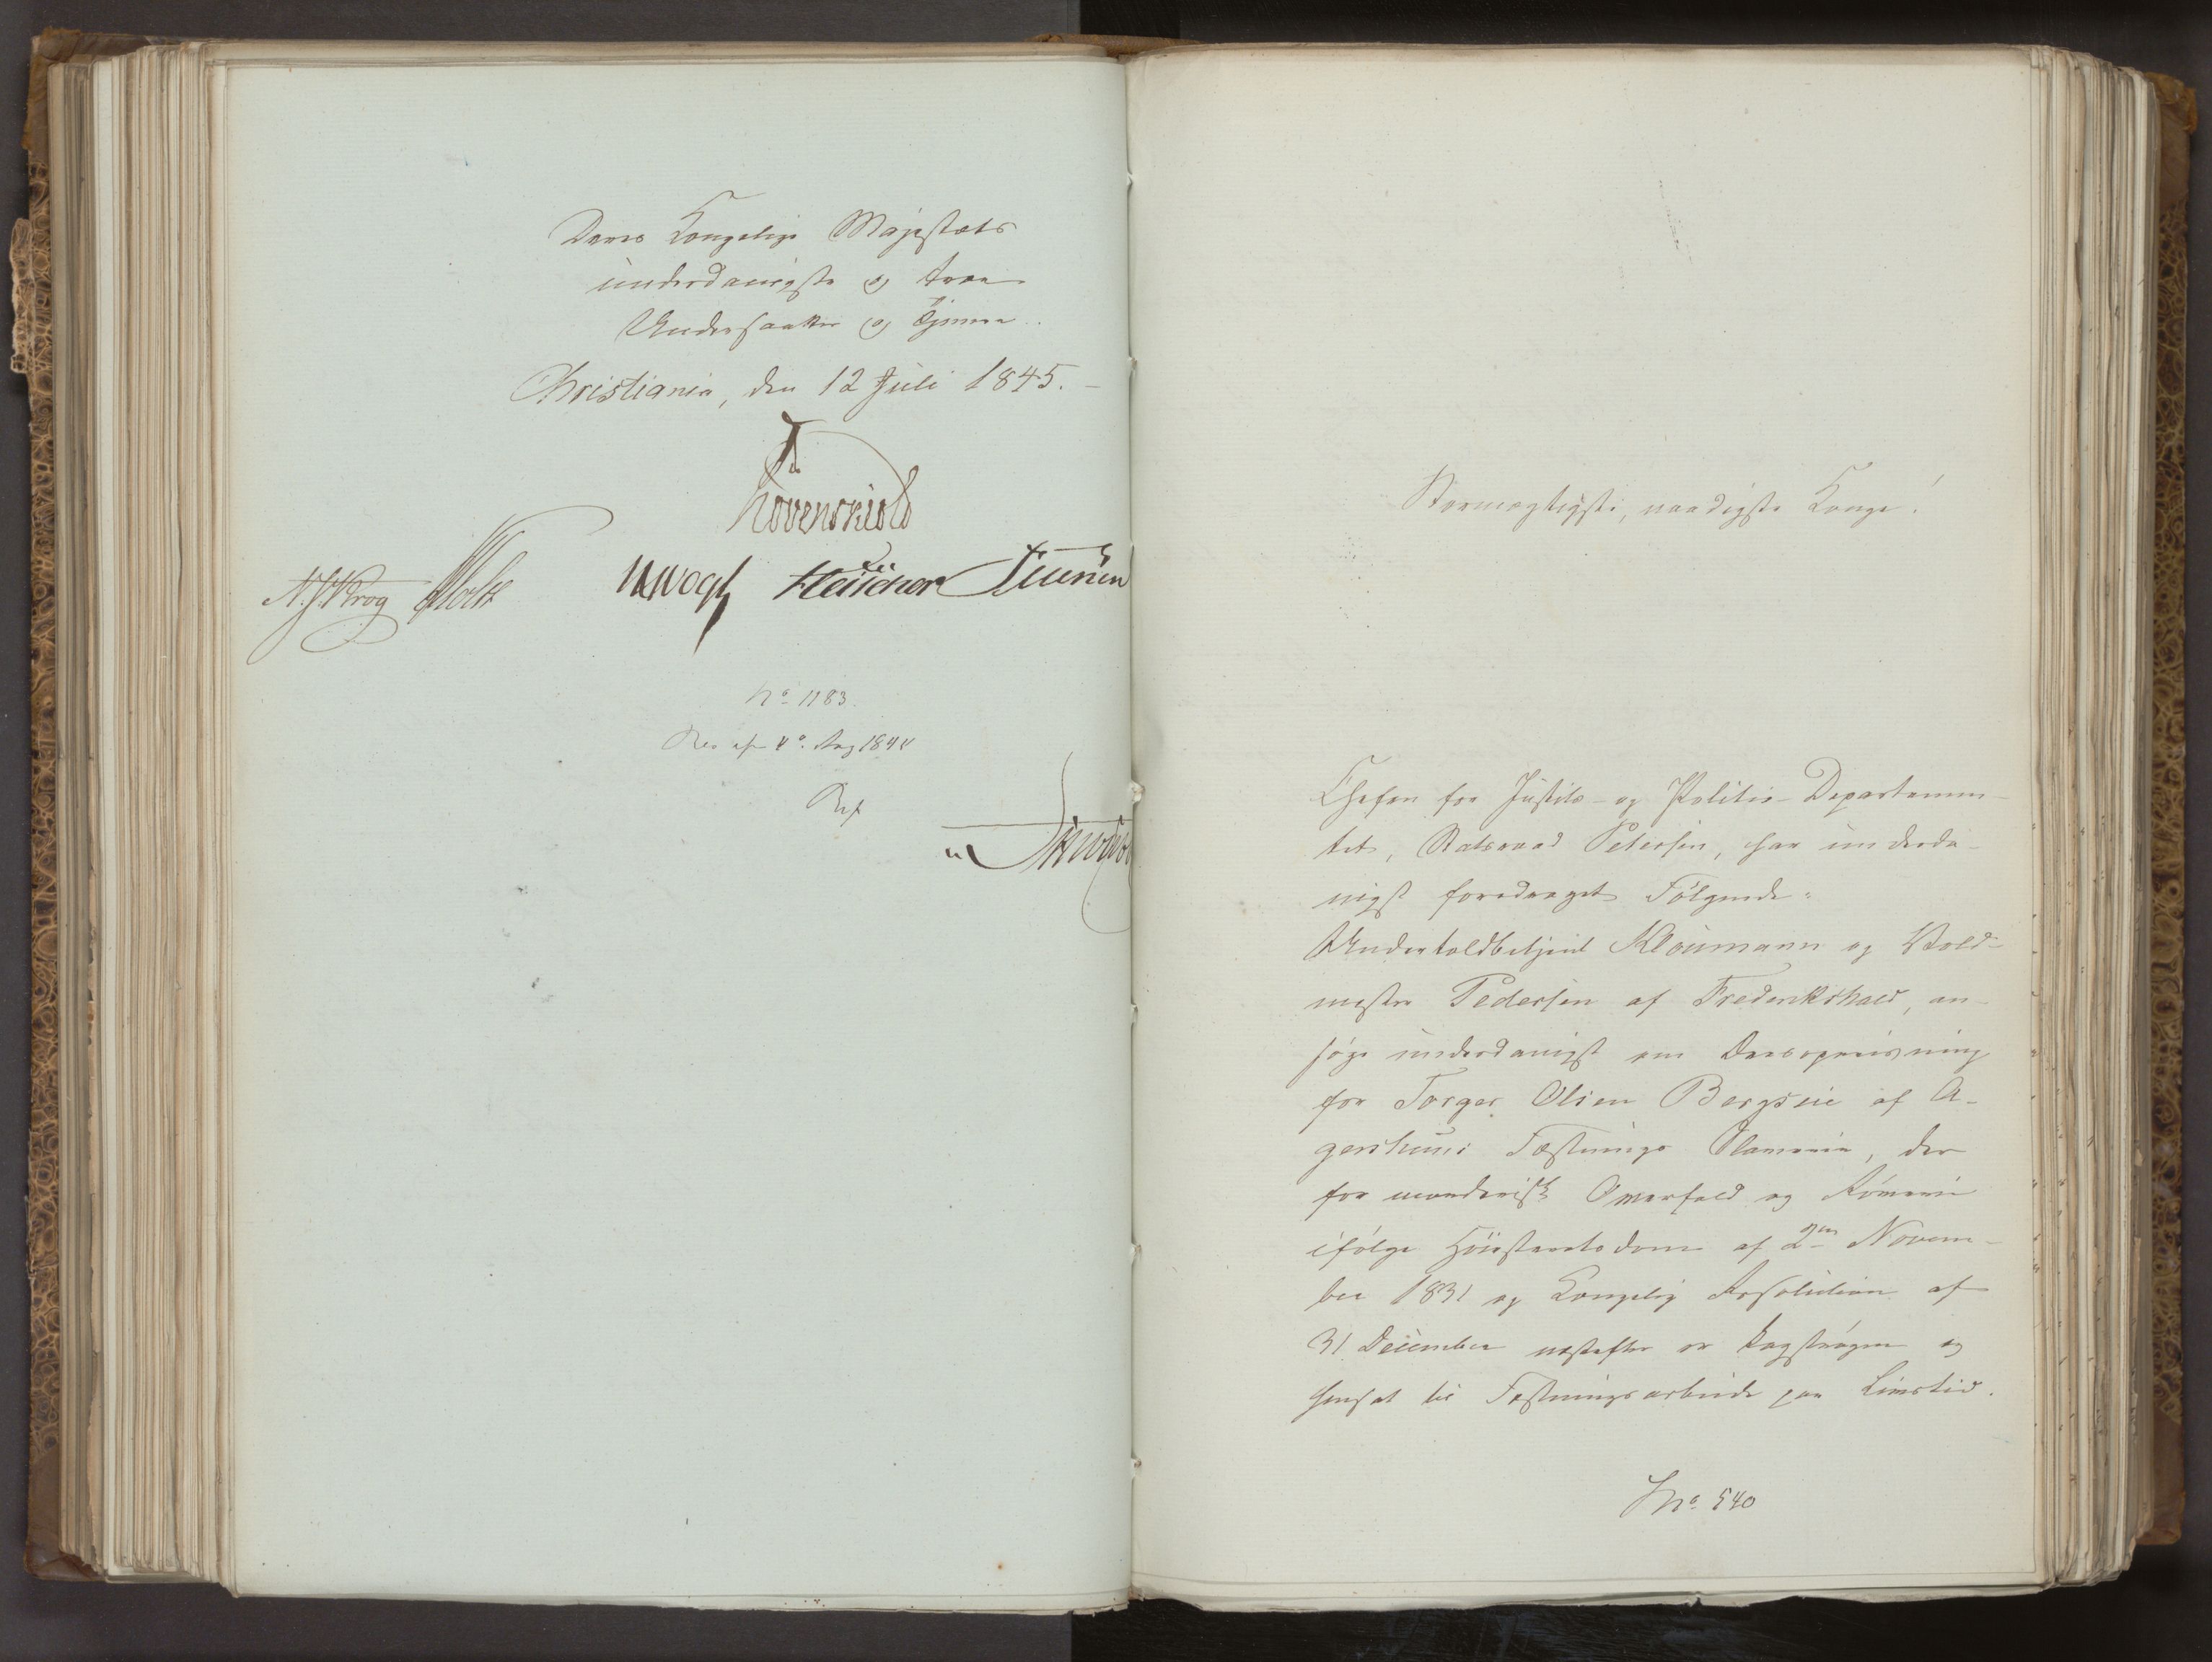 Deres Kongelige Majestæts
underdanigste og troe
Undersaatter og Tjenere.
Christiania, den 12 Juli 1845.
Løvenskiold
N. J. Krog Vogt
No 1183.
Res af 4de Aug 1844
Stormægtigste, naadigste Konge!
Chefen for Justits- og Politie-Departemen-
tet, Statsraad Petersen, har underda-
nigst foredraget Følgende:
Undertoldbetjent Kloumann og Vold-
mester Pedersen af Frederikshald, an-
søge underdanigst om
for Torger Olsen Bergseie af A-
gershuus Fæstnings Slaverie, der
for morderisk Overfald og Røverie
ifølge Høiestæretsdom af 2den Novem-
ber 1831 og Kongelig Resolution af
31 December næstefter er kagstrøgen og
hensat til Fæstningsarbeide paa Livstid.
No 540